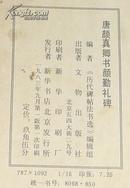 唐颜真卿书颜勤礼碑
编者 《历代碑帖法书选》编辑组
出版者 文物出版社
北京五四大街二九号
印刷者 新华印刷
发行者 新华书店北京发行所
一九八二年九月第一版第一次印刷
定价 玖角伍分
787×1092 1/16 印张:7.25
统一书号:8068·850